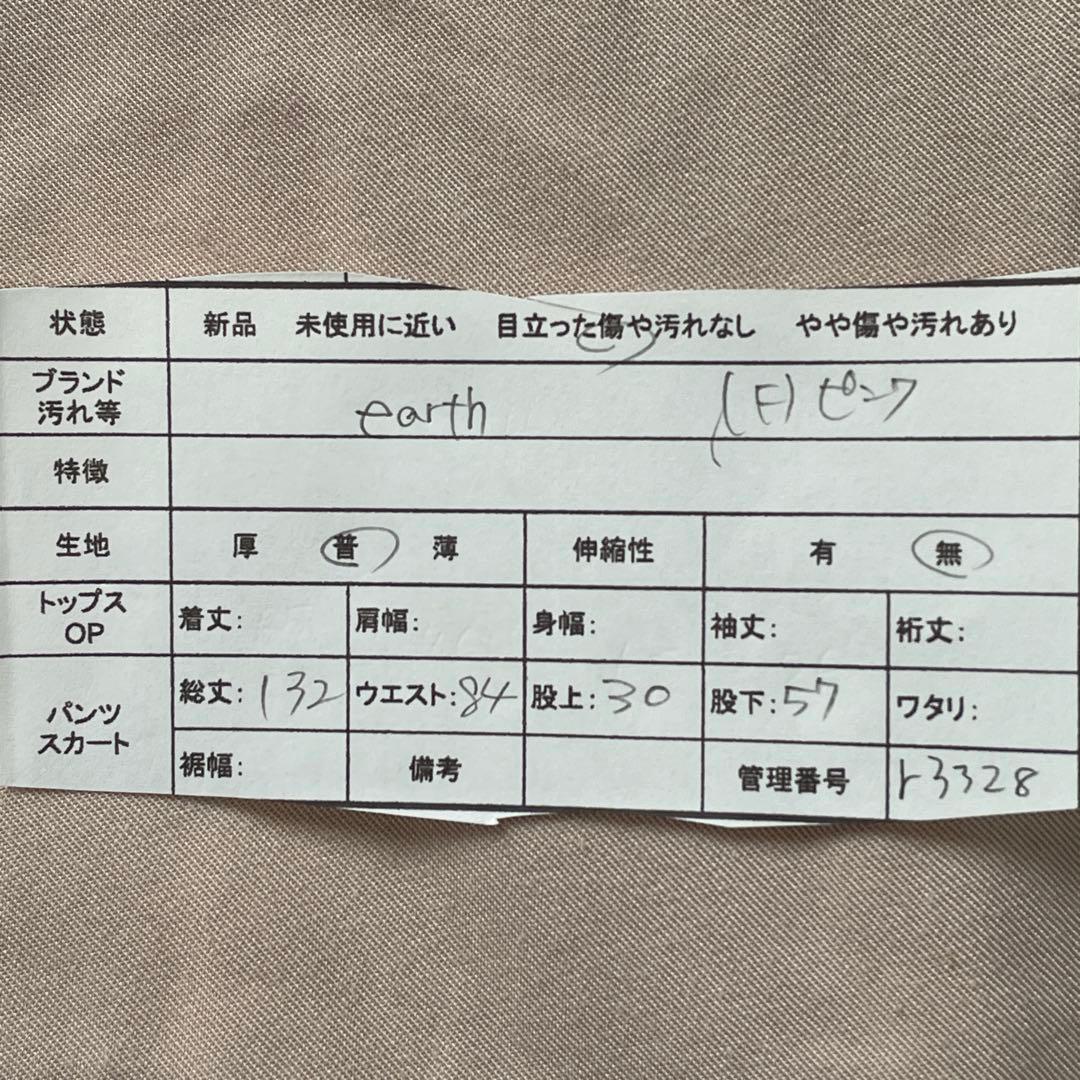 状態 新品 未使用に近い 目立った傷や汚れなし やや傷や汚れあり
ブランド
汚れ等 earth (F) ピンク
特徴
生地 厚 普 薄 伸縮性 有 無
トップス
OP 着丈: 肩幅: 身幅: 袖丈: 裄丈:
パンツ
スカート 総丈: 132 ウエスト: 84 股上: 30 股下: 57 ワタリ:
裾幅: 備考 管理番号 r3328